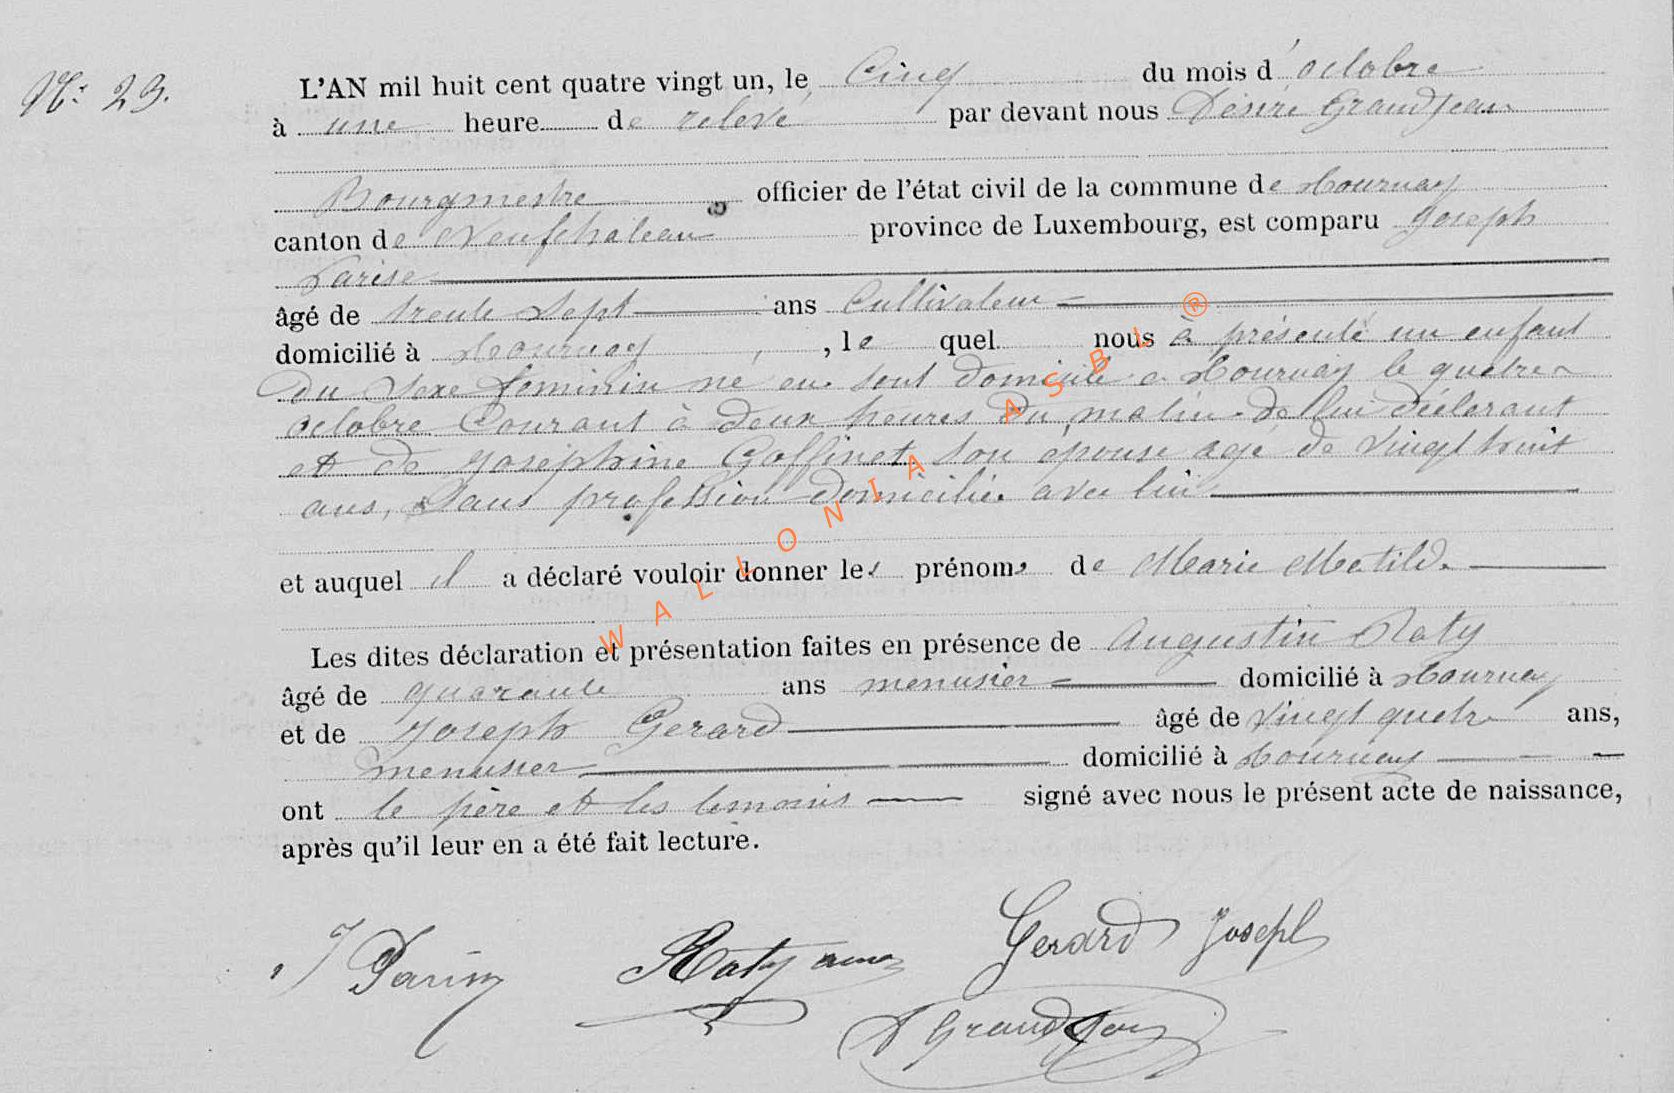 N° 23.
L'AN mil huit cent quatre vingt un, le Cinq du mois d'octobre
à une heure de relevé par devant nous Désiré Grandjean
Bourgmestre officier de l'état civil de la commune de Tournay
canton de Neufchateau province de Luxembourg, est comparu Joseph
Parise
âgé de trente sept ans Cultivateur
domicilié à Tournay, le quel nous à présenté un enfant
du sexe feminin né en sont domicile a Tournay le quatre
octobre Courant à deux heures du matin de lui déclarant
et de Joséphine Goffinet son épouse agé de vingt huit
ans, Sans profession domiciliée avec lui
et auquel il a déclaré vouloir donner les prénoms de Marie Matilde
Les dites déclaration et présentation faites en présence de Augustin Raty
âgé de quarante ans menusier domicilié à Tournay
et de Joseph Gerard âgé de vingt quatre ans,
menusier domicilié à Tournay
ont le père et les temoins signé avec nous le présent acte de naissance,
après qu'il leur en a été fait lecture.
J Raty Gerard Joseph
D Grandjean
WALLONIA ASBL ®